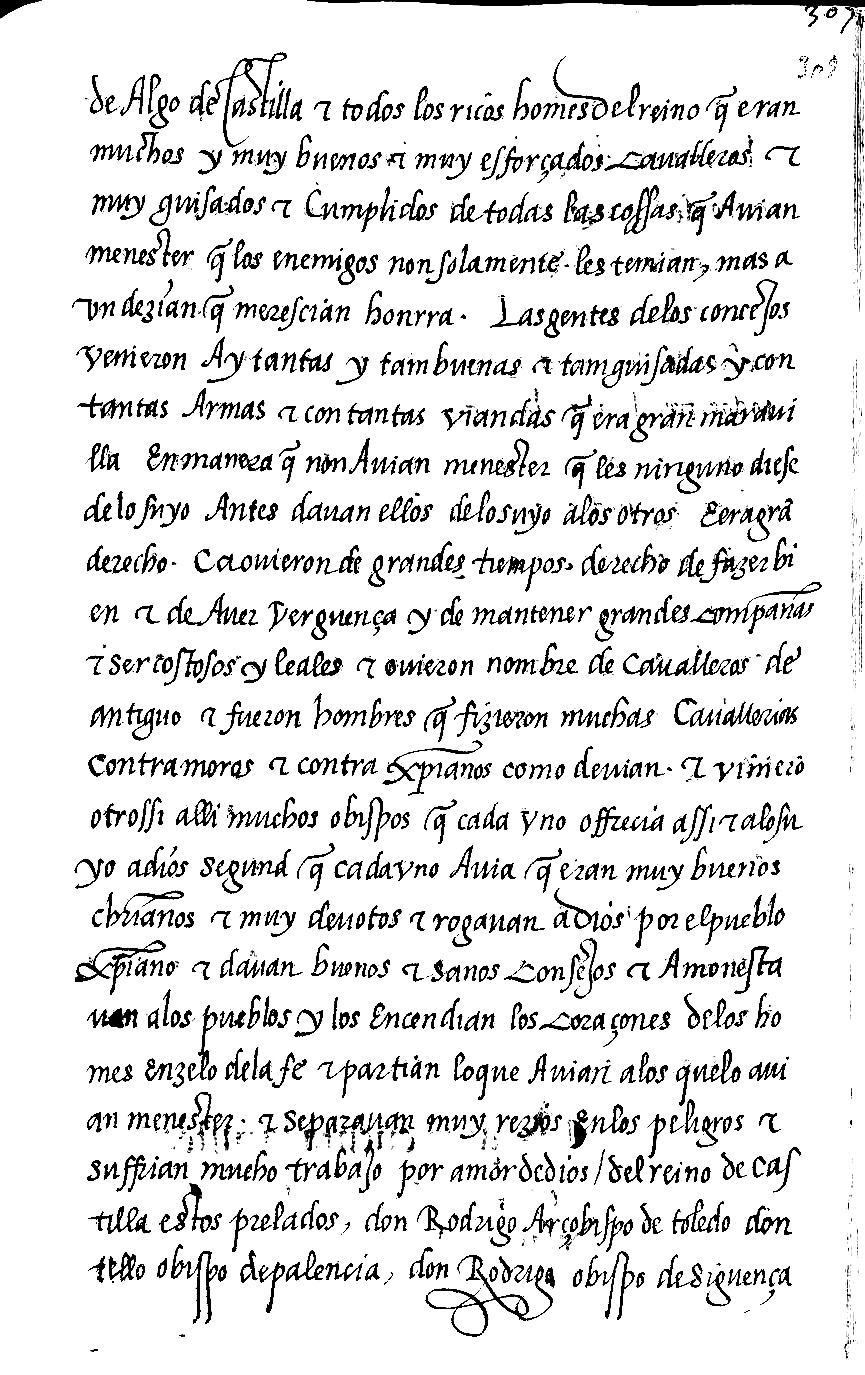 307
308
de Algo de Castilla ⁊ todos los ricos homes del reino q̃ eran
muchos y muy buenos ⁊ muy esforçados Cavalleros ⁊
muy guisados ⁊ Cumplidos de todas las cossas q̃ Avian
menester q̃ los enemigos non solamente les temian, mas a
vn dezian q̃ merescian honrra. Las gentes delos concejos
venieron Ay tantas y tam buenas ⁊ tam guisadas y con
tantas Armas ⁊ con tantas viandas q̃ era gran maravi
lla En manera q̃ non Avian menester q̃ les ninguno diese
delo suyo Antes davan ellos delo suyo alos otros E era grã
derecho. Ca ovieron de grandes tiempos derecho de fazer bi
en ⁊ de Aver Verguença y de mantener grandes compañas
⁊ ser costosos y leales ⁊ ovieron nombre de Cavalleros de
antiguo ⁊ fueron hombres q̃ fizieron muchas Cavallerias
Contra moros ⁊ contra xp̃ianos como devian. ⁊ viniero
otrossi alli muchos obispos q̃ cada vno offrecia assi ⁊ alo su
yo a dios segund q̃ cada vno Avia q̃ eran muy buenos
chrianos ⁊ muy devotos ⁊ rogavan a Dios por el pueblo
xp̃iano ⁊ davan buenos ⁊ sanos Consejos ⁊ Amonesta
van alos pueblos y los Encendian los Coraçones delos ho
mes En zelo dela fe ⁊ partian lo que Avian alos que lo avi
an menester. ⁊ se paravan muy rezios En los peligros ⁊
suffrian mucho trabajo por amor de dios / del reino de Cas
tilla estos prelados, don Rodrigo Arçobispo de toledo don
tello obispo de palencia, don Rodrigo obispo de Siguença